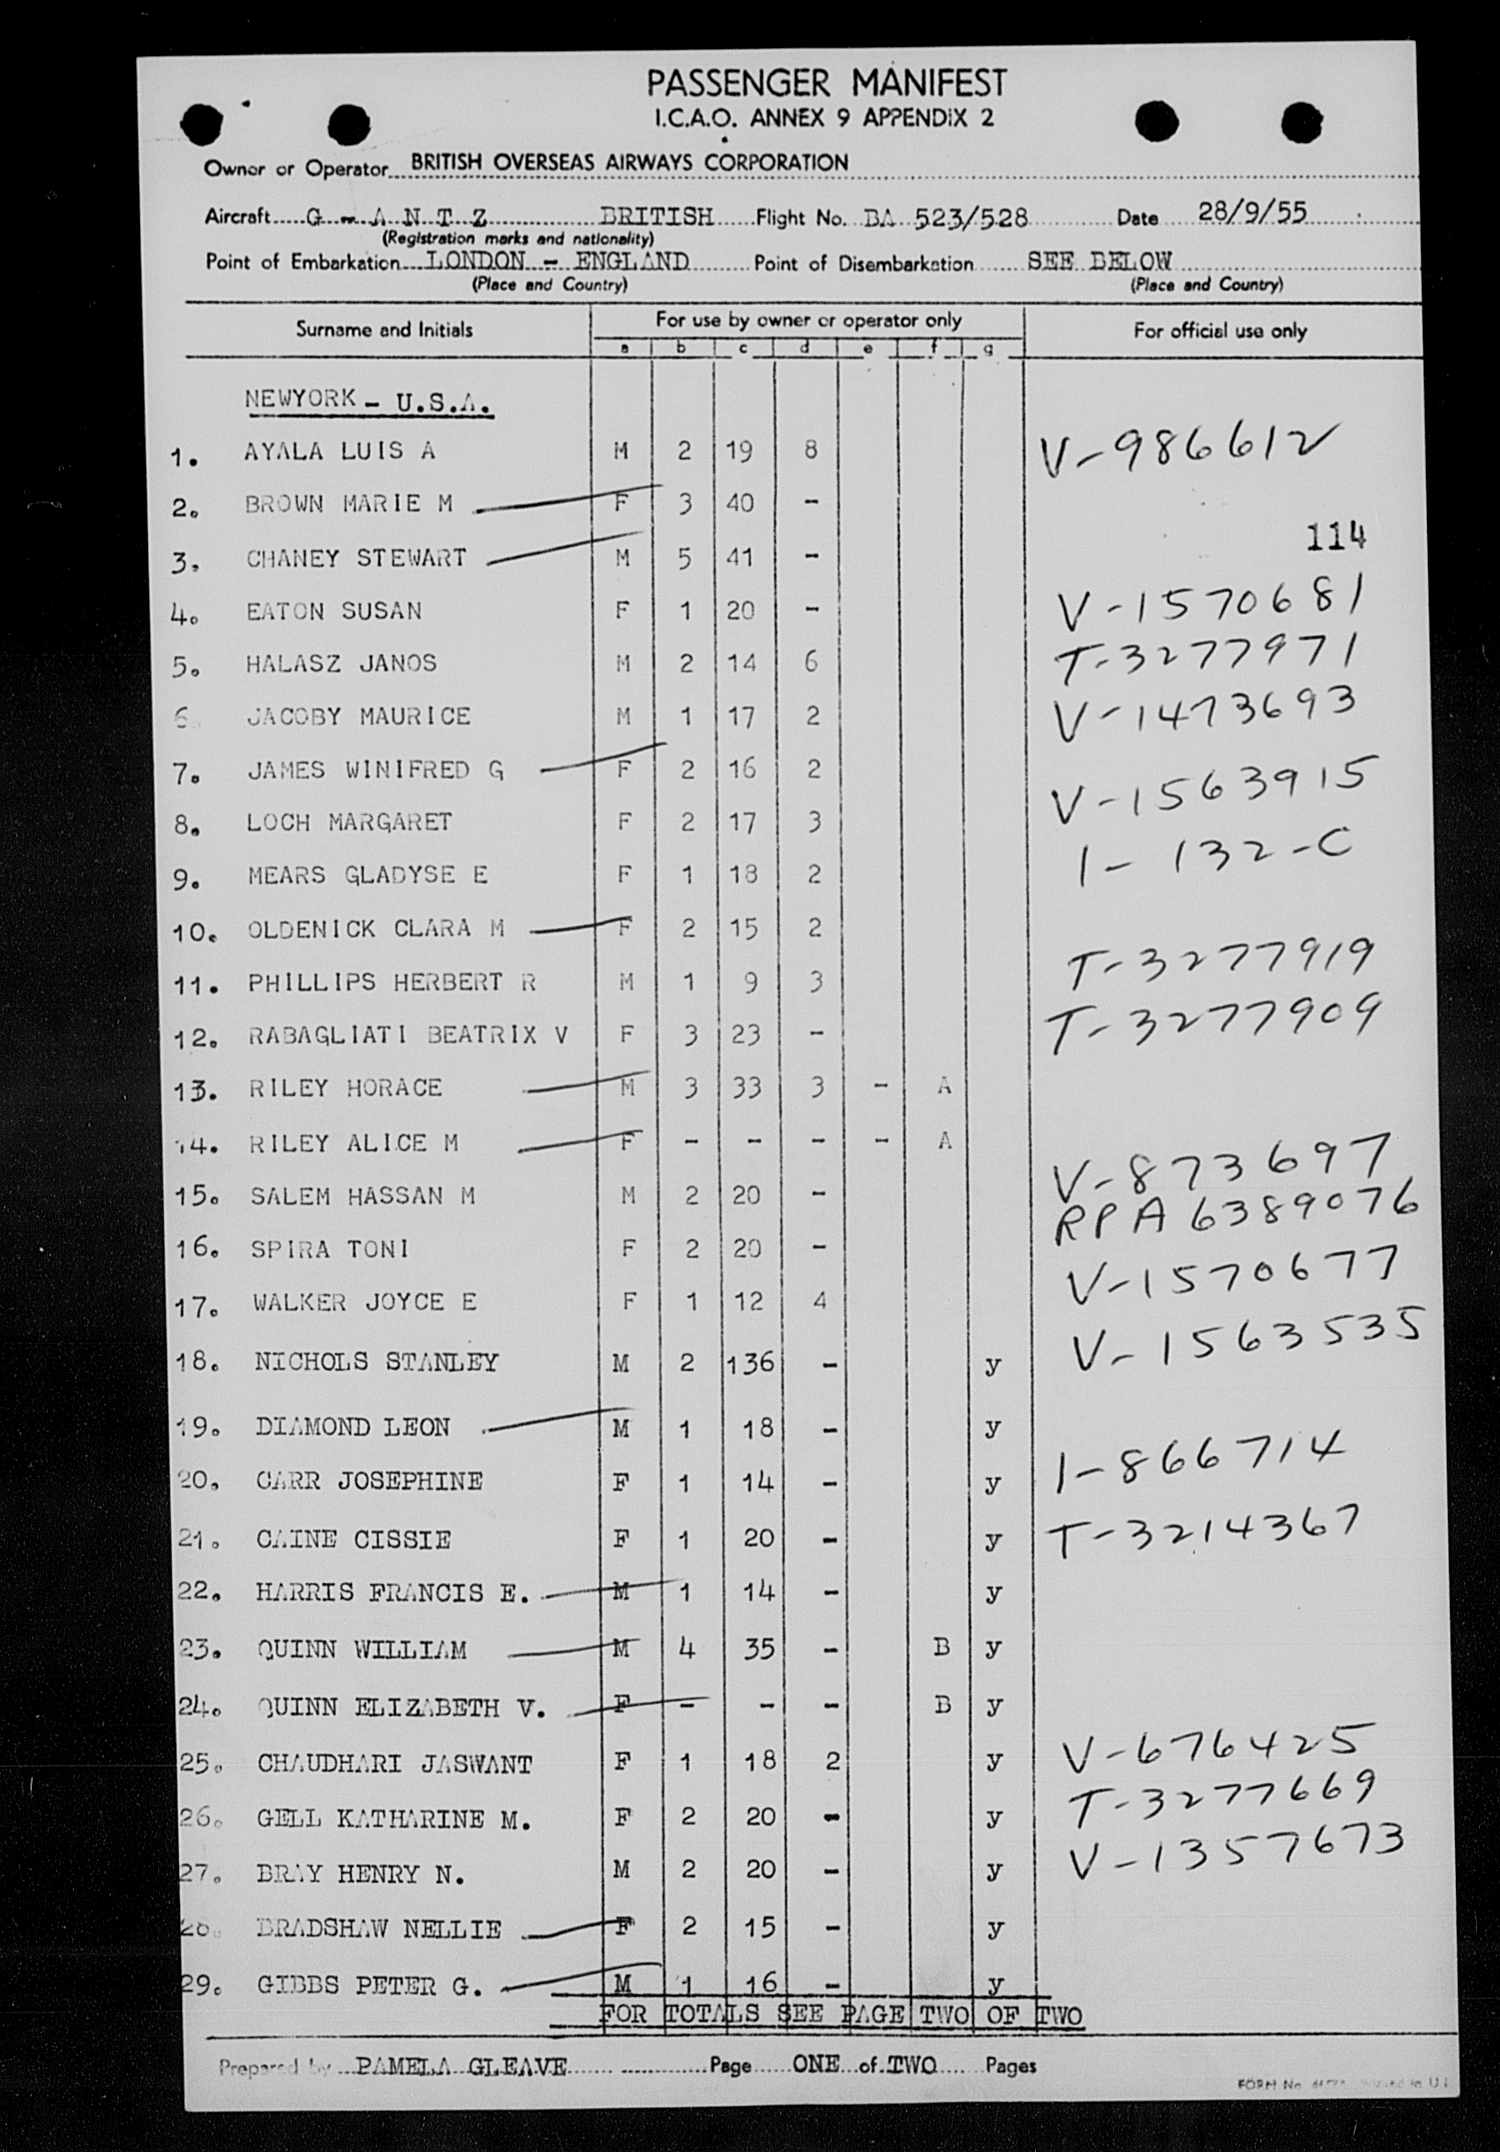 PASSENGER MANIFEST
I.C.A.O. ANNEX 9 APPENDIX 2
Owner or Operator BRITISH OVERSEAS AIRWAYS CORPORATION
Aircraft G - A N T Z BRITISH Flight No. BA 523/528 Date 28/9/55
(Registration marks and nationality)
Point of Embarkation LONDON - ENGLAND Point of Disembarkation SEE BELOW
(Place and Country) (Place and Country)
Surname and Initials For use by owner or operator only For official use only
a b c d e f g
NEWYORK - U.S.A.
1. AYALA LUIS A M 2 19 8 V-986612
2. BROWN MARIE M F 3 40 -
114
3. CHANEY STEWART M 5 41 -
4. EATON SUSAN F 1 20 - V-1570681
5. HALASZ JANOS M 2 14 6 T-3277971
6. JACOBY MAURICE M 1 17 2 V-1473693
7. JAMES WINIFRED G F 2 16 2
8. LOCH MARGARET F 2 17 3 V-1563915
9. MEARS GLADYSE E F 1 18 2 1-132-C
10. OLDENICK CLARA M F 2 15 2
11. PHILLIPS HERBERT R M 1 9 3 T-3277919
12. RABAGLIATI BEATRIX V F 3 23 - T-3277909
13. RILEY HORACE M 3 33 3 - A
14. RILEY ALICE M F - - - - A
15. SALEM HASSAN M M 2 20 - V-873697
16. SPIRA TONI F 2 20 - RPA 6389076
17. WALKER JOYCE E F 1 12 4 V-1570677
18. NICHOLS STANLEY M 2 136 - y V-1563535
19. DIAMOND LEON M 1 18 - y
20. CARR JOSEPHINE F 1 14 - y 1-866714
21. CAINE CISSIE F 1 20 - y T-3214367
22. HARRIS FRANCIS E. M 1 14 - y
23. QUINN WILLIAM M 4 35 - B y
24. QUINN ELIZABETH V. F - - - B y
25. CHAUDHARI JASWANT F 1 18 2 y V-676425
26. GELL KATHARINE M. F 2 20 - y T-3277669
27. BRAY HENRY N. M 2 20 - y V-1357673
28. BRADSHAW NELLIE F 2 15 - y
29. GIBBS PETER G. M 1 16 - y
FOR TOTALS SEE PAGE TWO OF TWO
Prepared by PAMELA GLEAVE Page ONE of TWO Pages
FORM No.